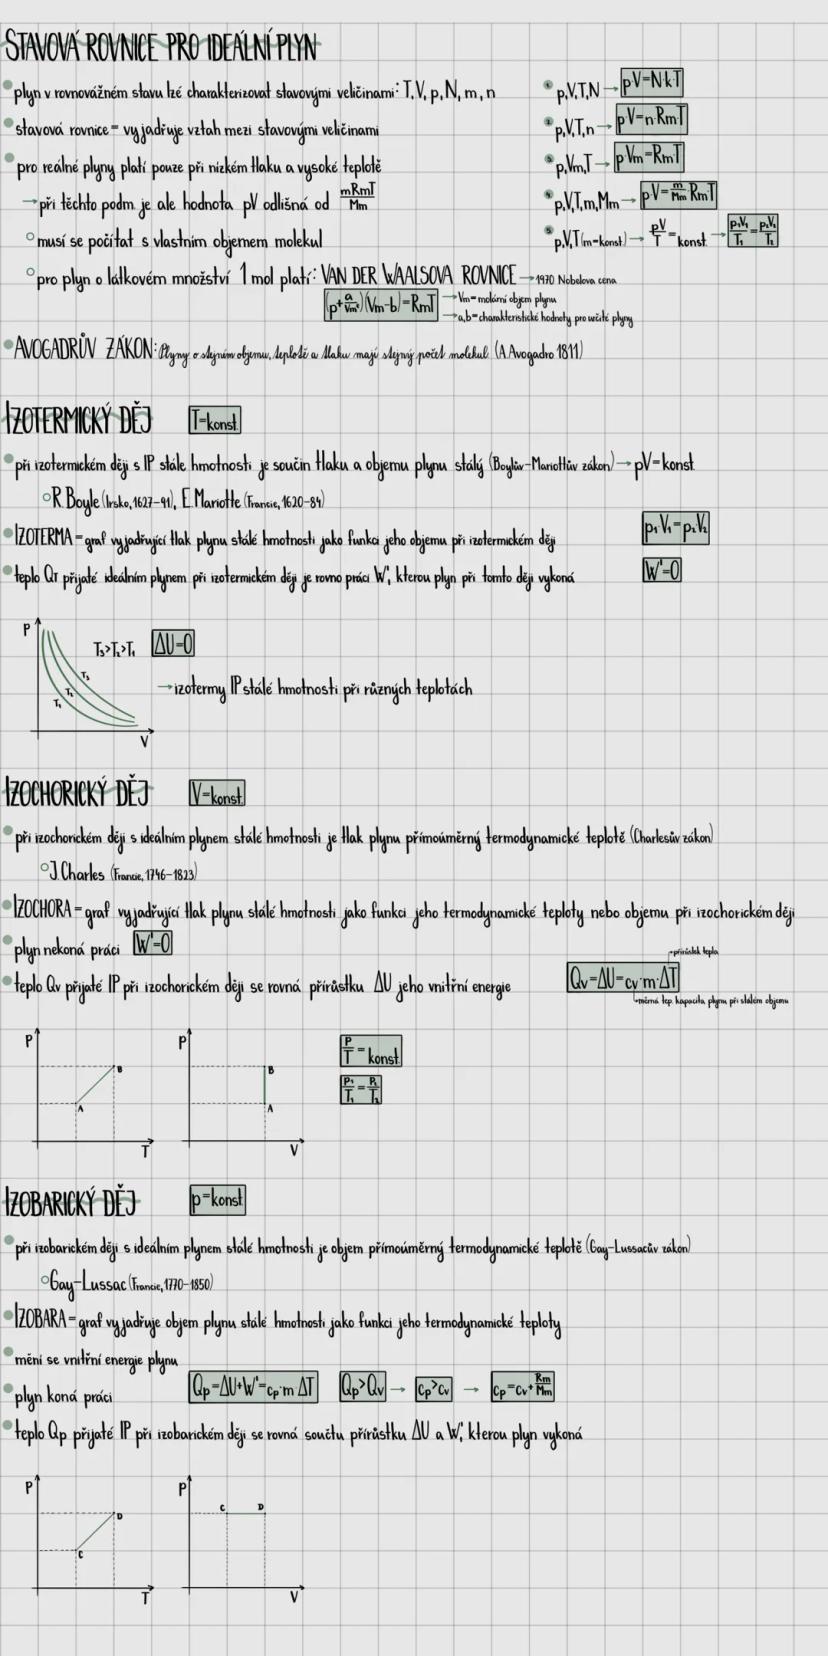 STAVOVÁ ROVNICE PRO IDEÁLNÍ PLYN
plyn v rovnovážném stavu lze charakterizovat stavovými veličinami: T, V, p, N, m, n
stavová rovnice = vyjadřuje vztah mezi stavovými veličinami
pro reálné plyny platí pouze při nízkém tlaku a vysoké teplotě
→ při těchto podm. je ale hodnota pV odlišná od mRmT/Mm
musí se počítat s vlastním objemem molekul
pro plyn o látkovém množství 1 mol platí: VAN DER WAALSOVA ROVNICE → 1970 Nobelova cena
(p+a/Vm²)(Vm-b)=RmT
→ Vm= molární objem plynu
→ a,b= charakteristické hodnoty pro určité plyny
1. p,V,T,N → p·V=N·k·T
2. p,V,T,n → p·V=n·Rm·T
3. p,Vm,T → p·Vm=RmT
4. p,V,T,m,Mm → p·V=m/Mm·RmT
5. p,V,T (m=konst.) → pV/T = konst. → p₁V₁/T₁ = p₂V₂/T₂
AVOGADRŮV ZÁKON: Plyny o stejném objemu, teplotě a tlaku mají stejný počet molekul. (A. Avogadro 1811)
IZOTERMICKÝ DĚJ T=konst.
při izotermickém ději s IP stálé hmotnosti je součin tlaku a objemu plynu stálý (Boylův-Mariottův zákon) → pV=konst.
R. Boyle (Irsko, 1627-91), E. Mariotte (Francie, 1620-84)
IZOTERMA = graf vyjadřující tlak plynu stálé hmotnosti jako funkci jeho objemu při izotermickém ději
p₁·V₁=p₂·V₂
teplo QT přijaté ideálním plynem při izotermickém ději je rovno práci W', kterou plyn při tomto ději vykoná
W'=0
p
T₃>T₂>T₁
ΔU=0
T₃
T₂
T₁
→ izotermy IP stálé hmotnosti při různých teplotách
V
IZOCHORICKÝ DĚJ V=konst.
při izochorickém ději s ideálním plynem stálé hmotnosti je tlak plynu přímoúměrný termodynamické teplotě (Charlesův zákon)
J. Charles (Francie, 1746-1823)
IZOCHORA = graf vyjadřující tlak plynu stálé hmotnosti jako funkci jeho termodynamické teploty nebo objemu při izochorickém ději
plyn nekoná práci W'=0
teplo Qv přijaté IP při izochorickém ději se rovná přírůstku ΔU jeho vnitřní energie
→ přírůstek tepla
Qv=ΔU=cv·m·ΔT
→ měrná tep. kapacita plynu při stálém objemu
P
B
A
T
P
B
A
V
P/T = konst.
P₁/T₁ = P₂/T₂
IZOBARICKÝ DĚJ p=konst.
při izobarickém ději s ideálním plynem stálé hmotnosti je objem přímoúměrný termodynamické teplotě (Gay-Lussacův zákon)
Gay-Lussac (Francie, 1770-1850)
IZOBARA = graf vyjadřuje objem plynu stálé hmotnosti jako funkci jeho termodynamické teploty
mění se vnitřní energie plynu
plyn koná práci
Qp=ΔU+W'=cp·m·ΔT
Qp>Qv → cp>cv → cp=cv+Rm/Mm
teplo Qp přijaté IP při izobarickém ději se rovná součtu přírůstku ΔU a W', kterou plyn vykoná
P
D
C
T
P
C
D
V